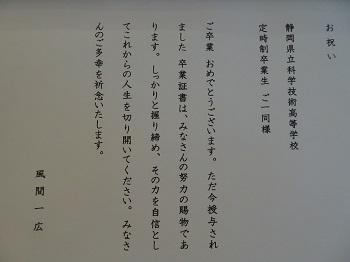 お祝い
静岡県立科学技術高等学校
定時制卒業生 ご一同様
ご卒業 おめでとうございます。ただ今授与され
ました 卒業証書は、みなさんの努力の賜物であ
ります。しっかりと握り締め、その力を自信とし
てこれからの人生を切り開いてください。みなさ
んのご多幸を祈念いたします。
風間一広